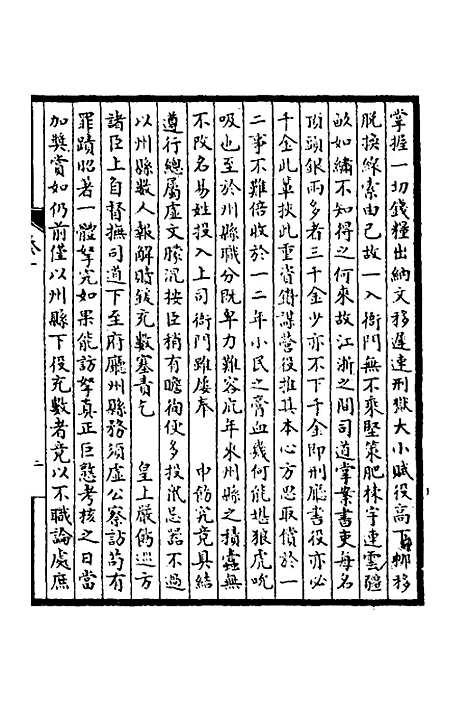 掌握一切錢糧出納文移遲速刑獄大小賦役高下那移
脫換線索由己故一入衙門無不乘堅策肥棟宇連雲疆
畝如繡不知得之何來故江浙之間司道掌案書吏每名
頂頭銀兩多者三千金少亦不下千金即刑廳書役亦必
千金此輩挾此重貲鑽謀營役推其本心方思取償於一
二事不難倍收於一二年小民之膏血幾何能堪狼虎吮
吸也至於州縣職分既卑力難容庇年來州縣之損蠹無
不改名易姓投入上司衙門雖屢奉 申飭究竟具結
遵行總屬虛文朦混按臣稍有瞻徇便多投鼠忌器不過
以州縣數人報解時綫充數塞責乞 皇上嚴飭巡方
諸臣上自督撫司道下至府廳州縣務須虛公察訪苟有
罪蹟昭著一體拏究如果能訪拏真正巨憝考核之日當
加獎賞如仍前僅以州縣下役充數者竟以不職論處庶
卷一